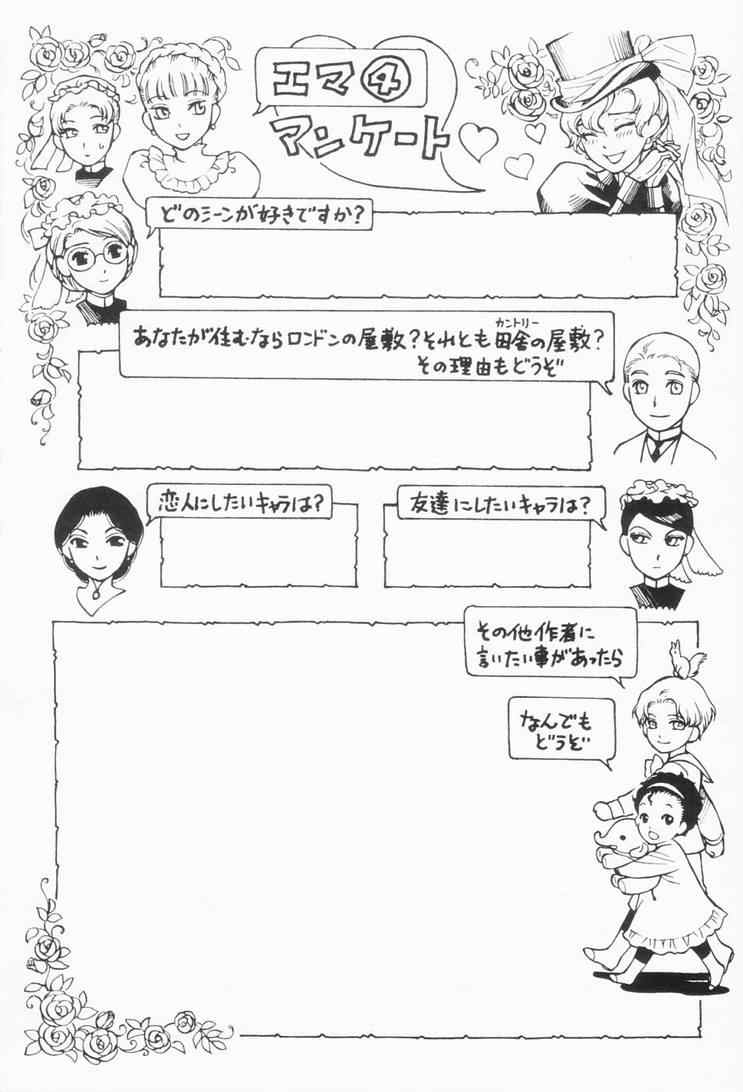 エマ④
アンケート♡
どのシーンが好きですか?
あなたが住むならロンドンの屋敷?それとも田舎の屋敷?
カントリー
その理由もどうぞ
恋人にしたいキャラは?
友達にしたいキャラは?
その他作者に
言いたい事があったら
なんでも
どうぞ